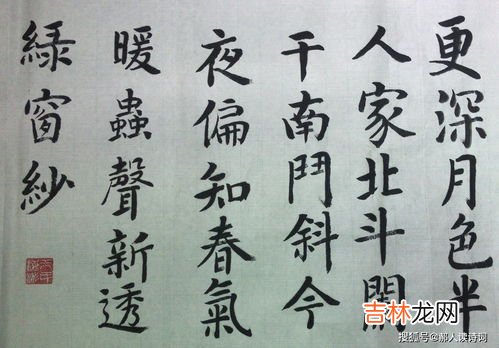 更深月色半
人家北斗闌
干南鬥斜今
夜偏知春氣
暖蟲聲新透
緑窗紗
吉林龙网
搜狐号@那人读诗词